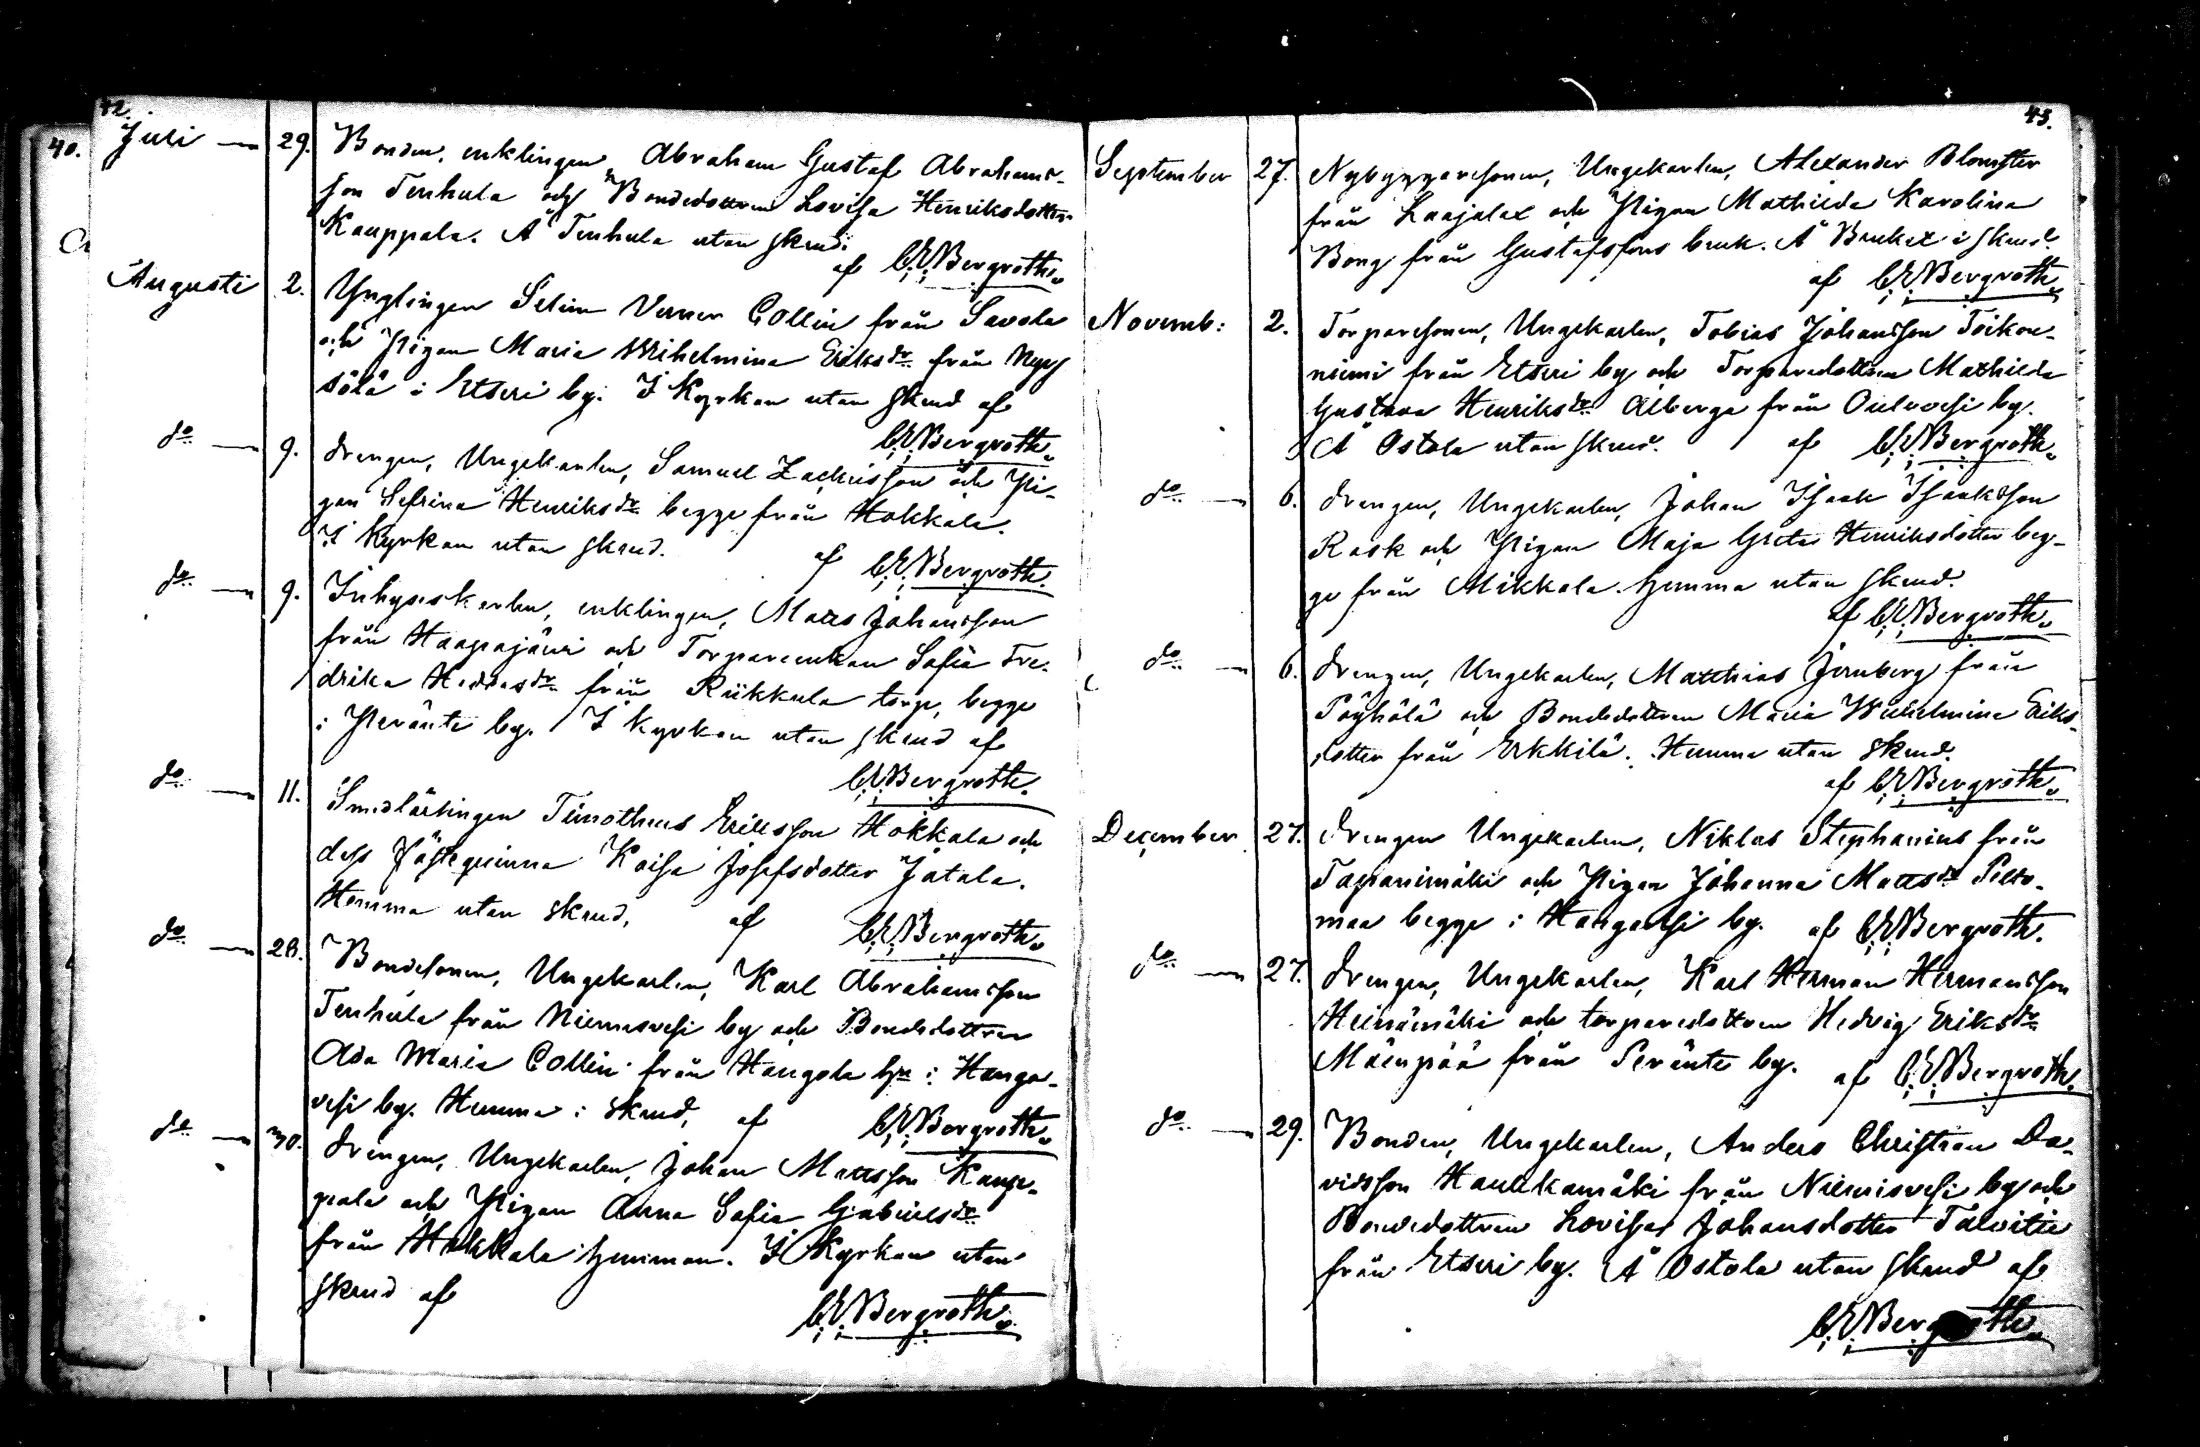 42.
40.
Juli — 29. Bonden, enklingen, Abraham Gustaf Abrahams-
son Tenhula och Bondedottren Lovisa Henriksdotter
Kauppala. Å Tenhula utan skrud.
af C. E. Bergroth.
Augusti 2. Ynglingen Selim Verner Collin från Savola
och Pigan Maria Wilhelmina Eriksdr från Nyy
sölä i Etseri by. I Kyrkan utan skrud af
C. E. Bergroth.
do — 9. Drengen, Ungekarlen, Samuel Zachrisson och Pi-
gan Sefrina Henriksdr begge från Hokkala.
I Kyrkan utan skrud. af C. E. Bergroth.
do — 9. Inhyseskarlen, enklingen, Matts Johansson
från Haapajärvi och Torpareenkan Sofia Fre-
drika Heddasdr från Rükkula torp, begge
i Peränte by. I Kyrkan utan skrud af
C. E. Bergroth.
do — 11. Smedlärlingen Timotheus Eriksson Hokkala och
dess Fästeqvinna Kaisa Josefsdotter Jatala.
Hemma utan skrud, af C. E. Bergroth.
do — 28. Bondesonen, Ungekarlen, Karl Abrahamsson
Tenhula från Niemisvesi by och Bondedottren
Ada Maria Collin från Hangola hn i Hanga-
vesi by. Hemma i skrud, af C. E. Bergroth.
do — 30. Drengen, Ungekarlen, Johan Mattsson Kaup-
pala och Pigan Anna Sofia Gabrielsdr
från Hokkala hemman. I Kyrkan utan
skrud af
C. E. Bergroth.
43.
September 27. Nybyggaresonen, Ungekarlen, Alexander Blomster
från Laajalax och Pigan Mathilda Karolina
Bong från Gustafsfors bruk. Å Bruket i skrud.
af C. E. Bergroth.
Novemb: 2. Torparesonen, Ungekarlen, Tobias Johansson Toikon-
niemi från Etseri by och Torparedottren Mathilda
Gustava Henriksdr Alberga från Oulvesi by.
Å Ostola utan skrud. af C. E. Bergroth.
do — 6. Drengen, Ungekarlen, Johan Isaak Isaaksson
Rask och Pigan Maja Greta Henriksdotter beg-
ge från Mikkala. Hemma utan skrud.
af C. E. Bergroth.
do — 6. Drengen, Ungekarlen, Matthias Jernberg från
Pöyhölä och Bondedottren Maria Wilhelmina Eriks-
dotter från Erkkilä. Hemma utan skrud.
af C. E. Bergroth.
December 27. Drengen Ungekarlen, Niklas Stephanius från
Tapanimäki och Pigan Johanna Mattsdr Pelto-
maa begge i Hangavesi by. af C. E. Bergroth.
do — 27. Drengen, Ungekarlen, Karl Herman Hermansson
Heinämäki och torparedottren Hedvig Eriksdr
Mäenpää från Peränte by. af C. E. Bergroth.
do — 29. Bonden, Ungekarlen, Anders Christian Da-
vidsson Haukkamäki från Niemisvesi by och
Bondedottren Lovisa Johansdotter Talvitie
från Etseri by. Å Ostola utan skrud af
C. E. Bergroth.